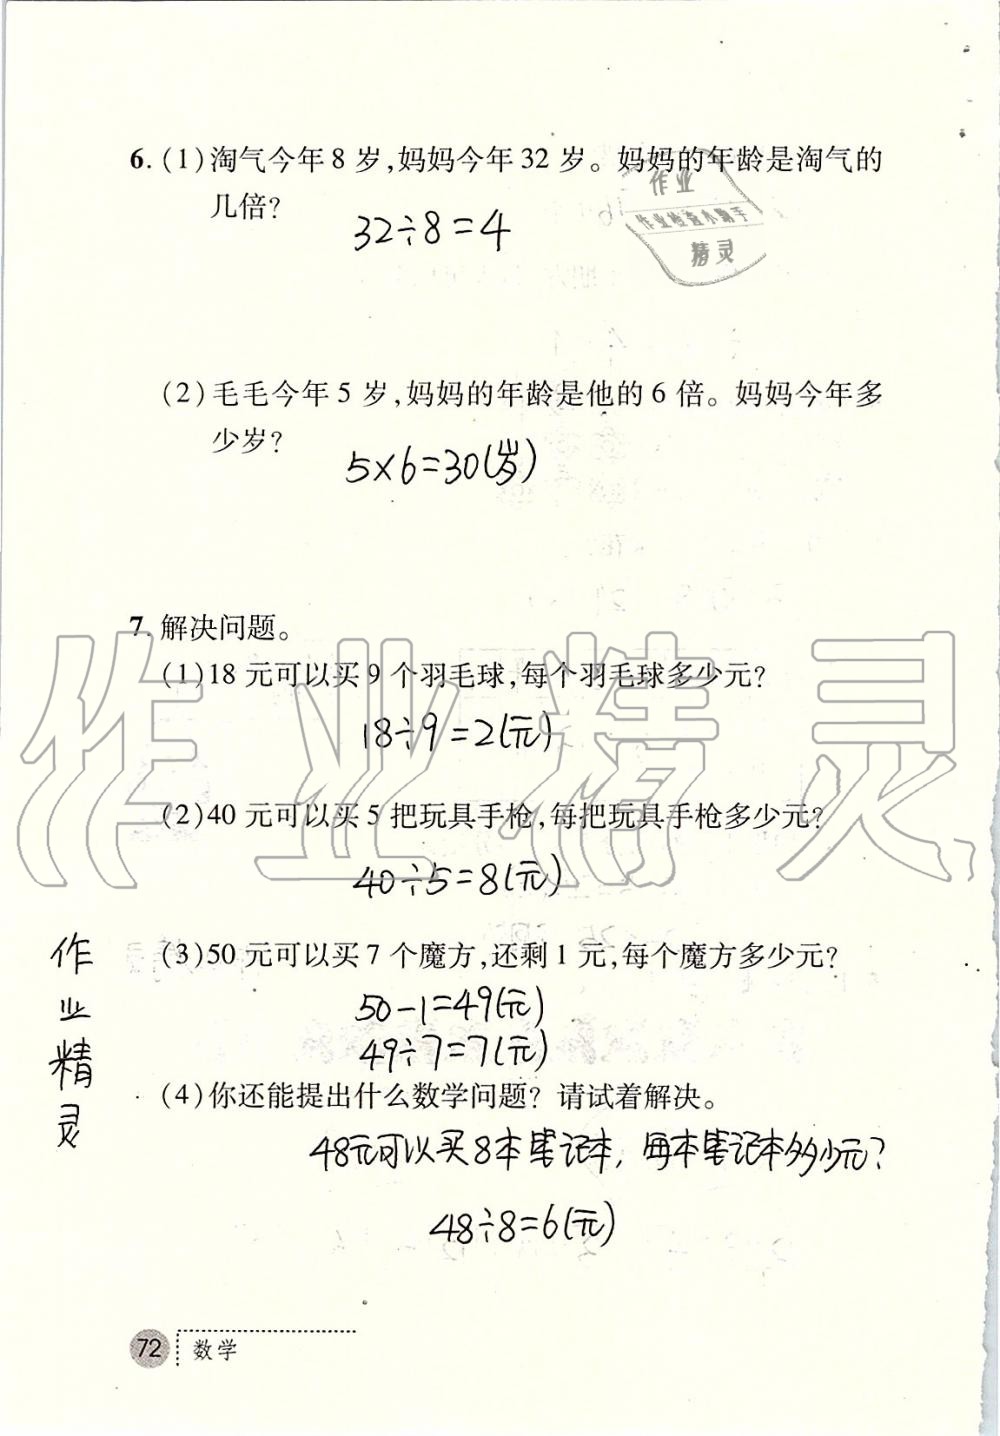 6. (1)淘气今年8岁,妈妈今年32岁。妈妈的年龄是淘气的
几倍?
32÷8=4
作业
作业检查小助手
精灵
(2)毛毛今年5岁,妈妈的年龄是他的6倍。妈妈今年多
少岁?
5×6=30(岁)
7. 解决问题。
(1)18元可以买9个羽毛球,每个羽毛球多少元?
18÷9=2(元)
(2)40元可以买5把玩具手枪,每把玩具手枪多少元?
40÷5=8(元)
(3)50元可以买7个魔方,还剩1元,每个魔方多少元?
50-1=49(元)
49÷7=7(元)
(4)你还能提出什么数学问题?请试着解决。
48元可以买8本笔记本,每本笔记本多少元?
48÷8=6(元)
作业精灵
作业精灵
72 数学